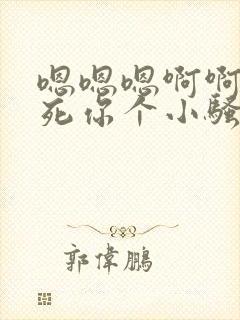 嗯嗯嗯啊啊
死你个小骚
郭偉鵬